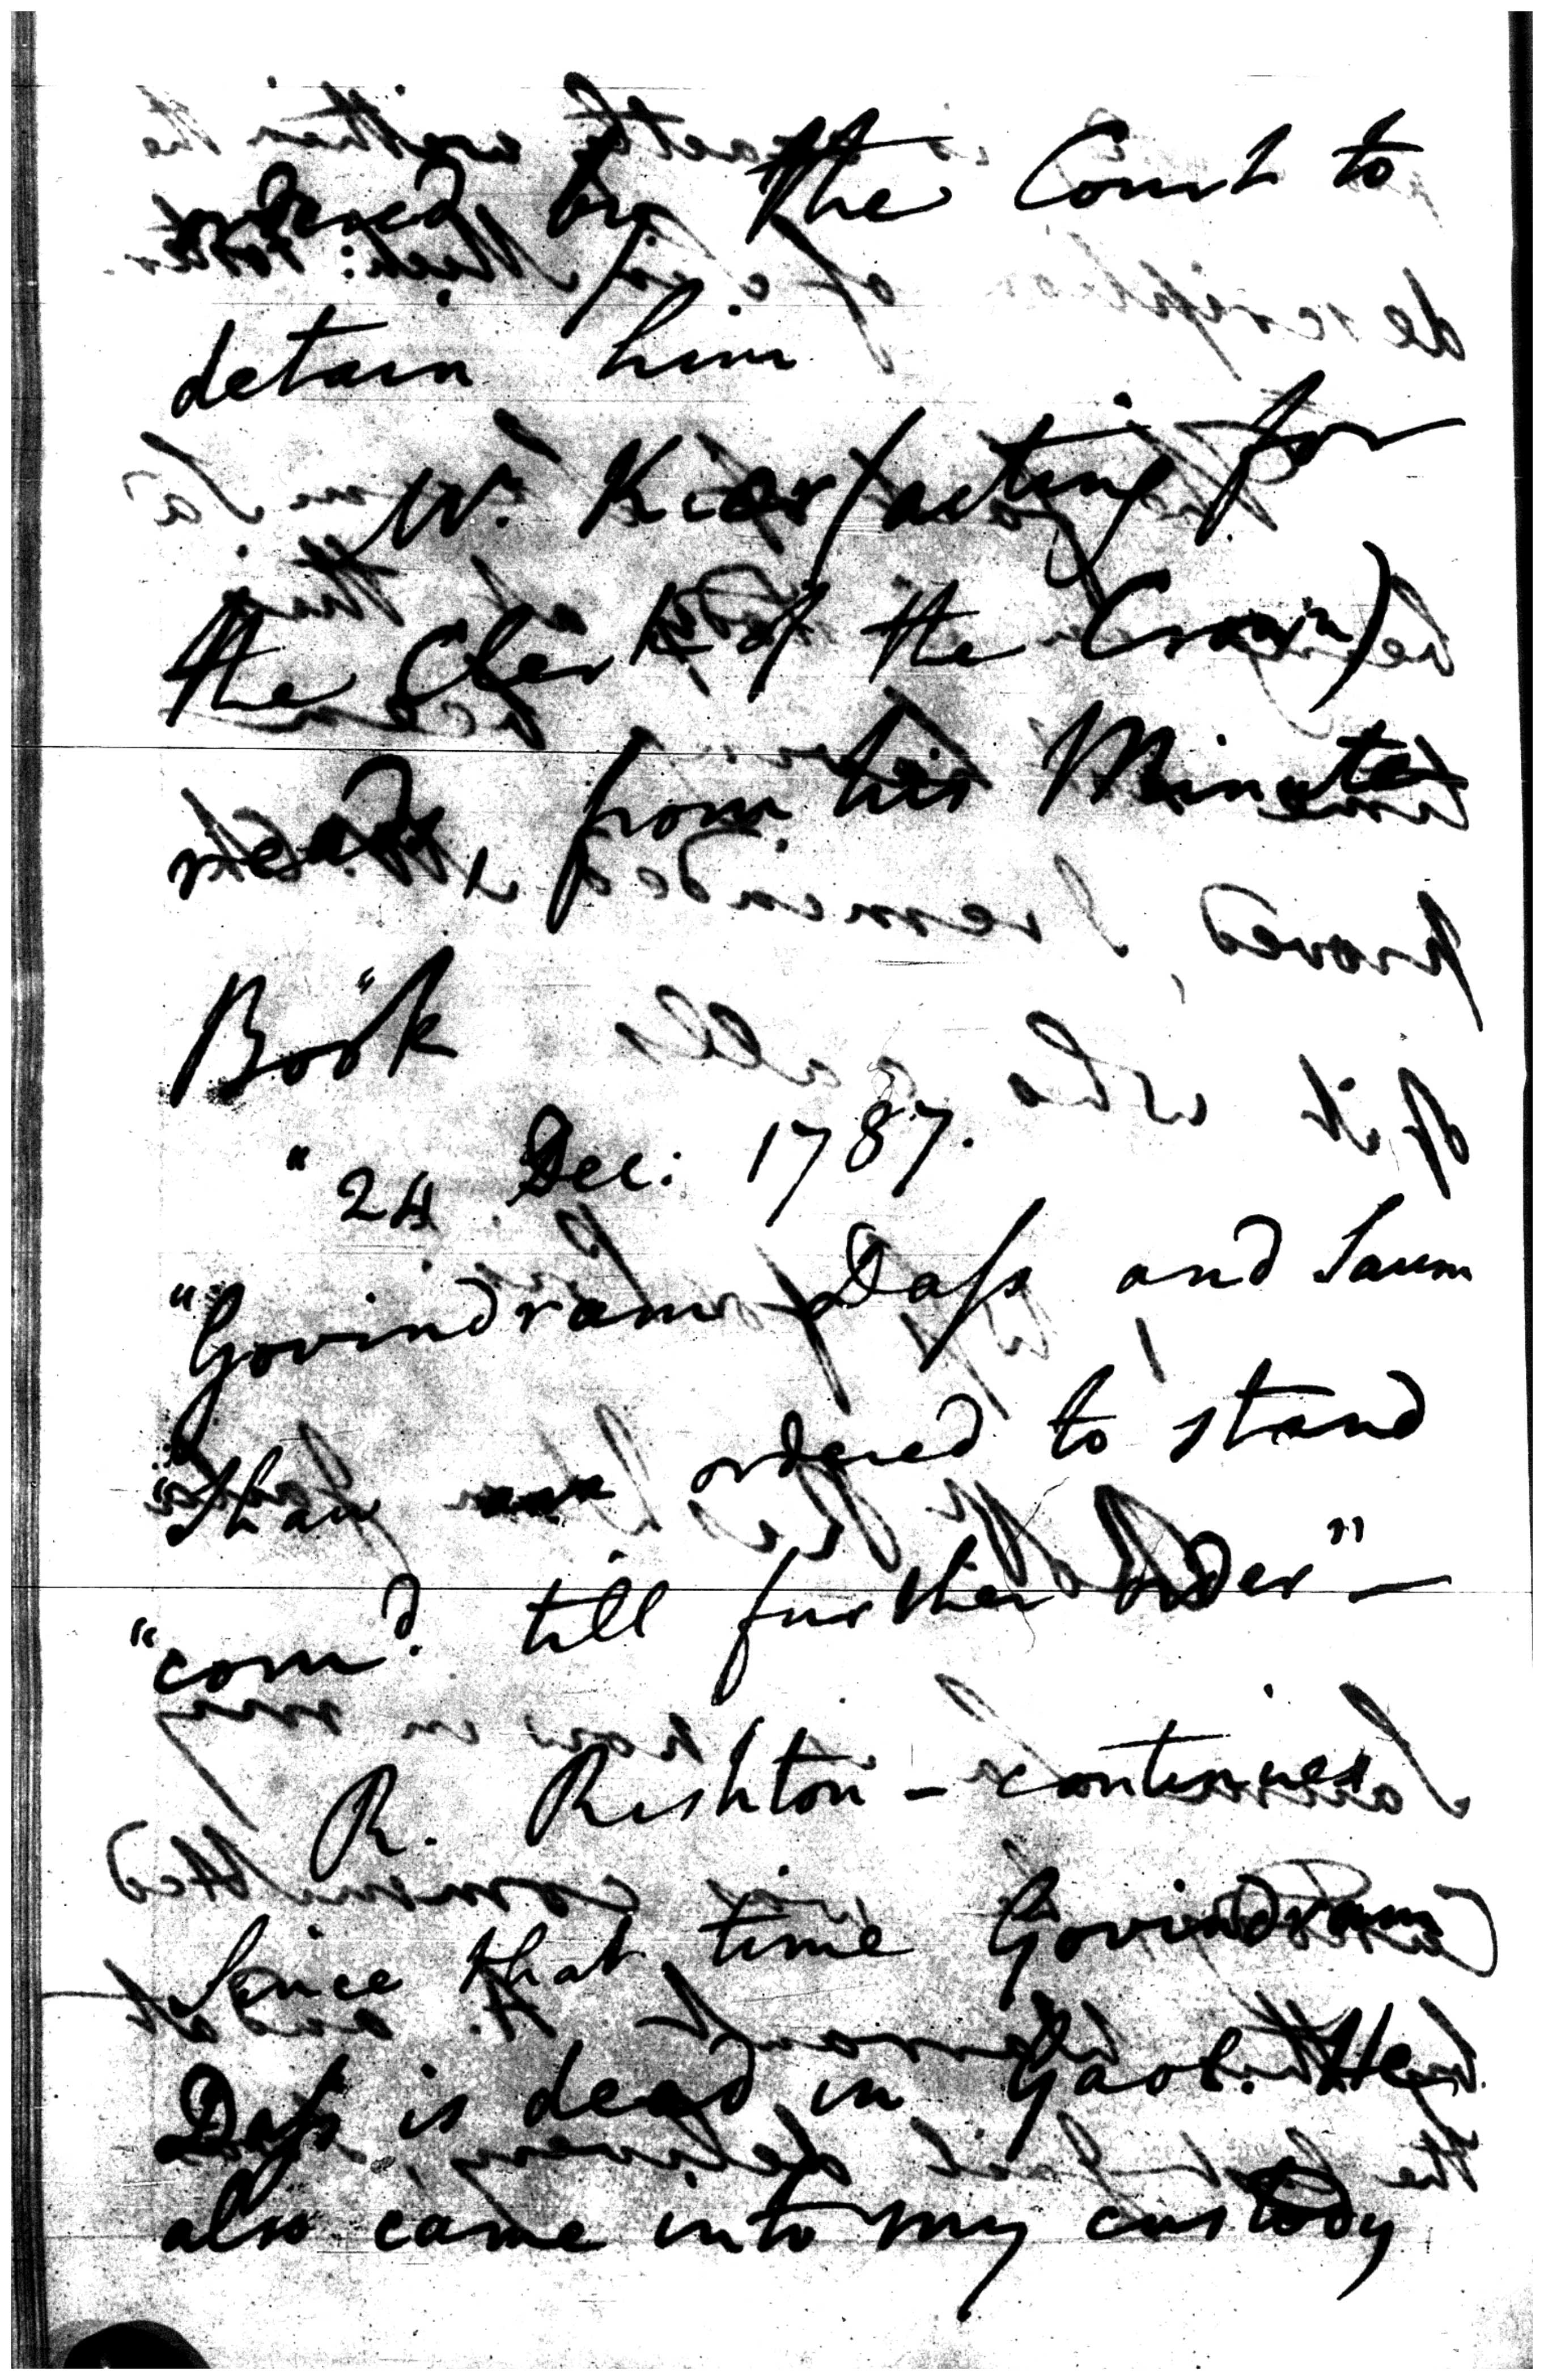 ordered by the Court to
detain him
Wm. Kier (acting for
the Clerk of the Crown)
reads, from his Minute
Book
"24 Dec: 1787.
"Govindram Dass and Saum
"Shaw ordered to stand
"comd. till further order" —
R. Rishton - continues
Since that time Govindram
Dass is dead in Gaol. He
also came into my custody